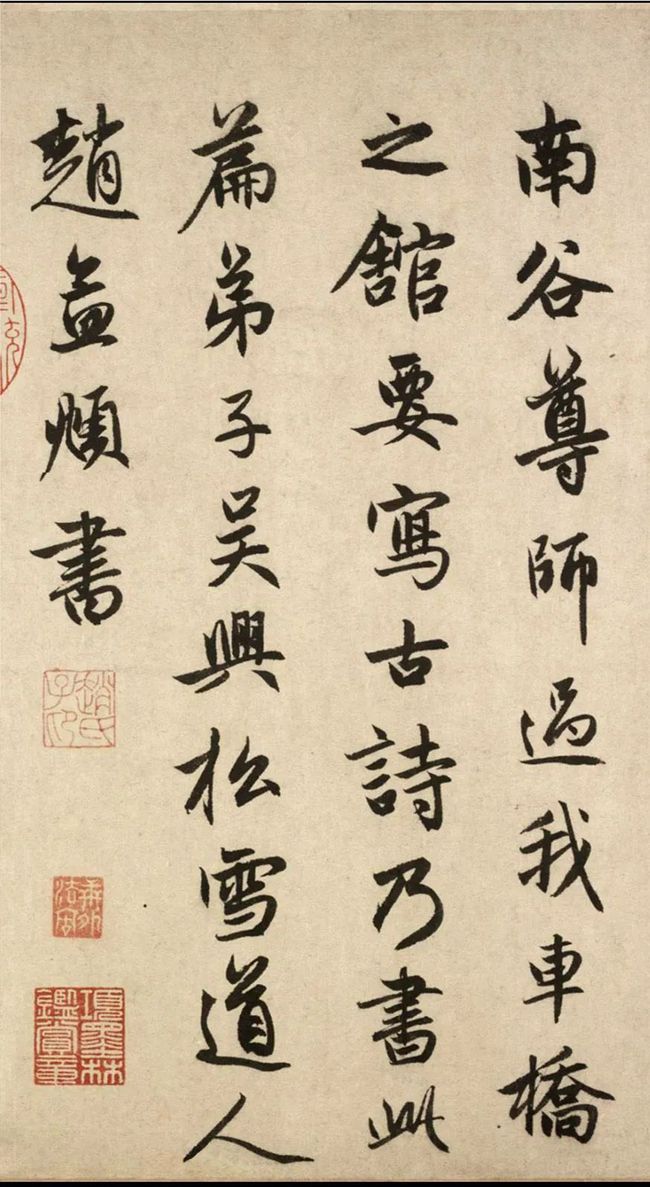 南谷尊師過我車橋
之舘要寫古詩乃書此
篇弟子吳興松雪道人
趙孟頫書
趙氏子昂
項墨林鑑賞章